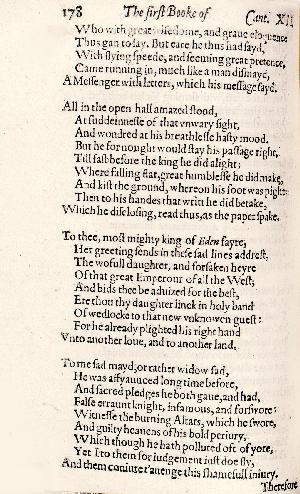 178 The first Booke of Cant. XII
Who with great wisedome, and graue eloquence
Thus gan to say. But eare he thus had sayd,
With flying speede, and seeming great pretence,
Came running in, much like a man dismayd,
A Messenger with letters, which his message sayd.
All in the open hall amazed stood,
At suddeinnesse of that vnwary sight,
And wondred at his breathlesse hasty mood.
But he for nought would stay his passage right,
Till fast before the king he did alight;
Where falling flat, great humblesse he did make,
And kist the ground, whereon his foot was pight;
Then to his handes that writ he did betake,
Which he disclosing, read thus, as the paper spake.
To thee, most mighty king of Eden fayre,
Her greeting sends in these sad lines addrest,
The wofull daughter, and forsaken heyre
Of that great Emperour of all the West;
And bids thee be aduized for the best,
Ere thou thy daughter linck in holy band
Of wedlocke to that new vnknowen guest:
For he already plighted his right hand
Vnto another loue, and to another land.
To me sad mayd, or rather widow sad,
He was affyaunced long time before,
And sacred pledges he both gaue, and had,
False erraunt knight, infamous, and forswore:
Witnesse the burning Altars, which he swore,
And guilty heauens of his bold periury,
Which though he hath polluted oft of yore,
Yet I to them for iudgement iust doe fly,
And them coniure t'auenge this shamefull iniury.
Therefore